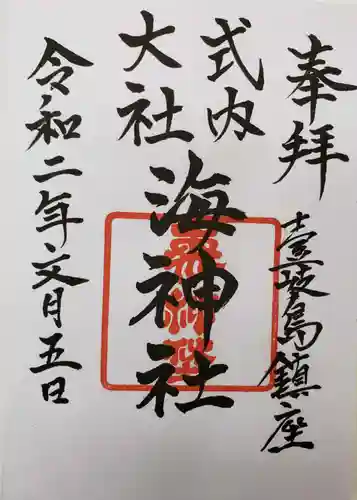 奉拝
壹岐島鎮座
式内
大社
海神社
令和二年文月五日